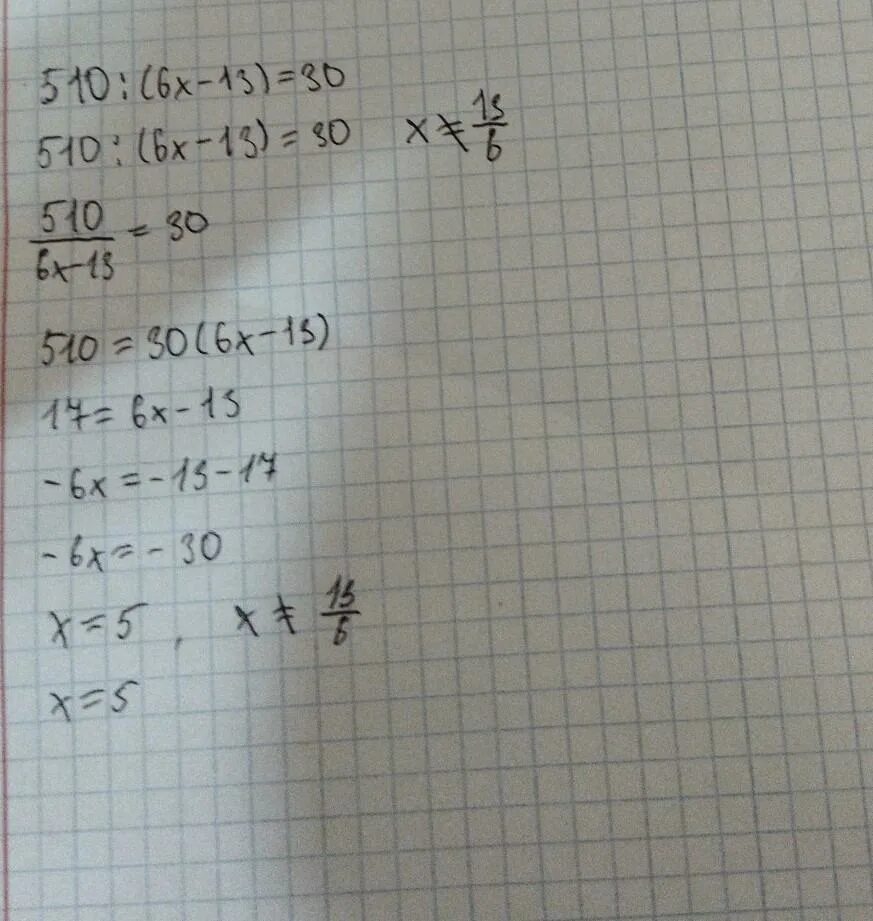 510:(6x-13)=30
510:(6x-13)=30 x≠13/6
510/6x-13 = 30
510=30(6x-13)
17=6x-13
-6x=-13-17
-6x=-30
x=5, x≠13/6
x=5